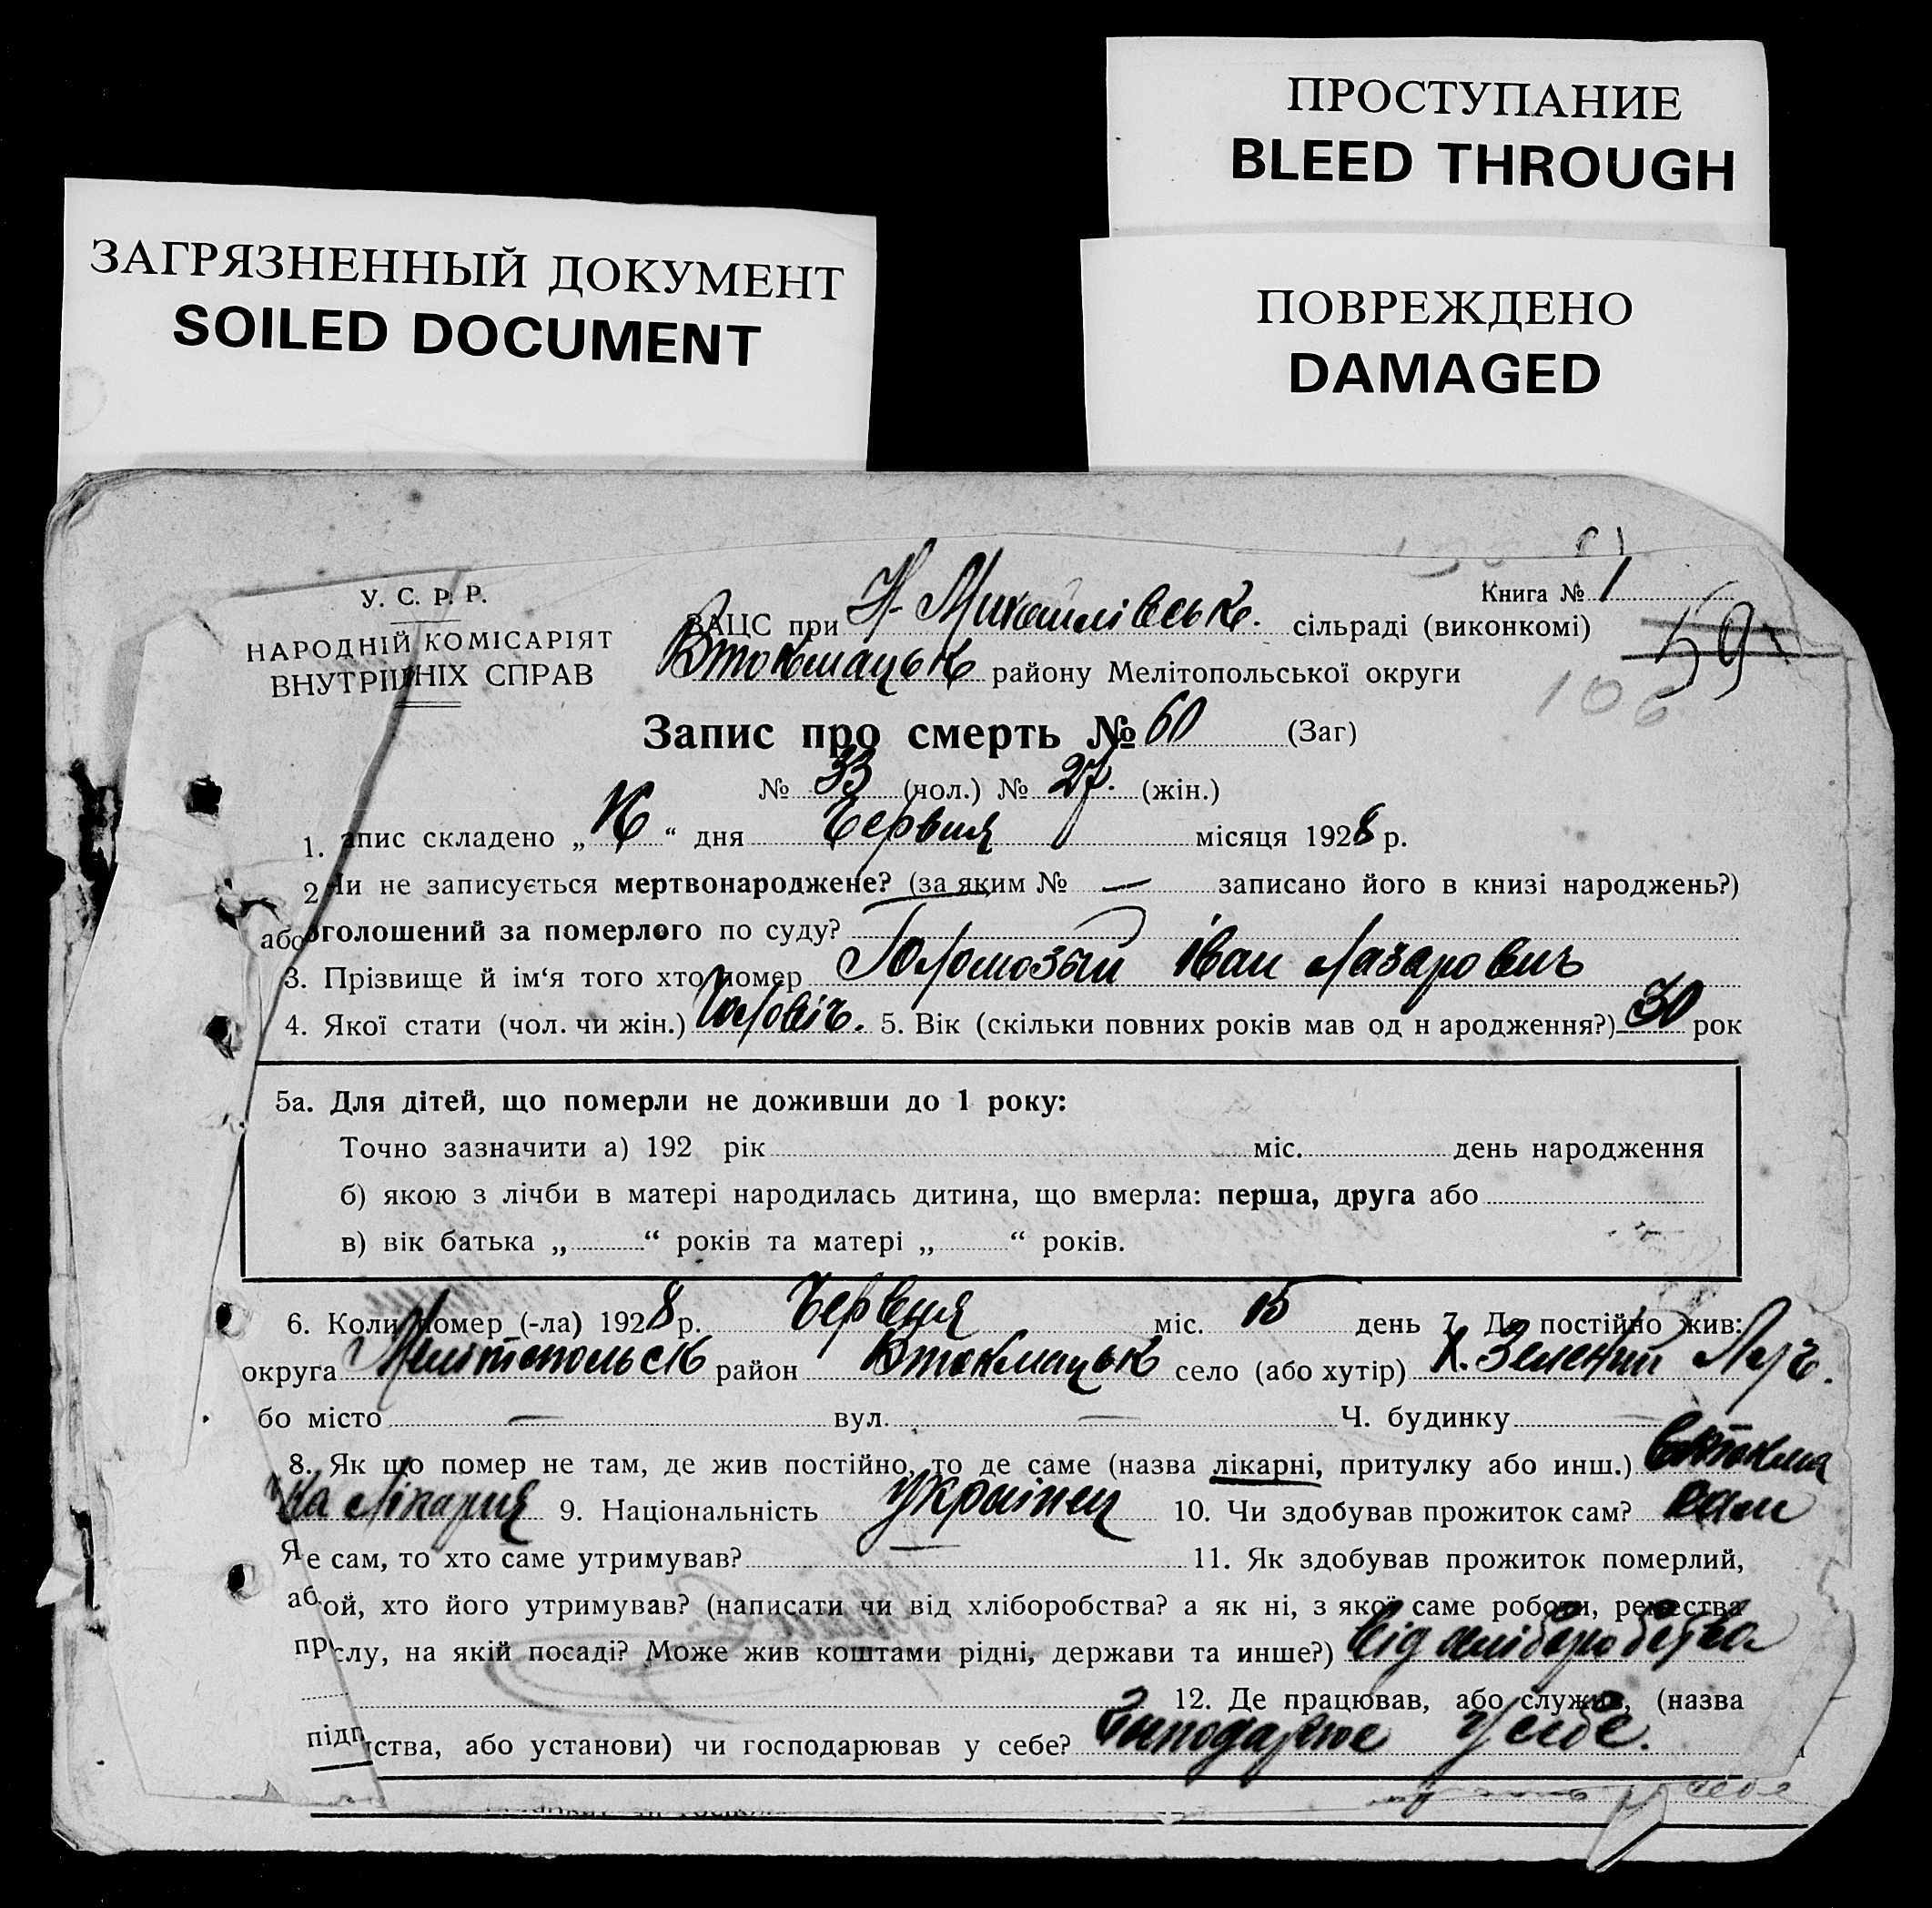 ПРОСТУПАНИЕ
BLEED THROUGH
ЗАГРЯЗНЕННЫЙ ДОКУМЕНТ
SOILED DOCUMENT
ПОВРЕЖДЕНО
DAMAGED
У. С. Р. Р.
НАРОДНІЙ КОМІСАРІЯТ
ВНУТРІШНІХ СПРАВ
Книга № 1
ЗАЦС при Н-Михайлівськ. сільраді (виконкомі)
59
Втокмацьк району Мелітопольської округи
106
Запис про смерть № 60 (Заг)
№ 33 (чол.) № 27. (жін.)
1. апис складено „16“ дня Червня місяця 1928 р.
2 Чи не записується мертвонароджене? (за яким № — записано його в книзі народжень?)
або оголошений за померлого по суду?
3. Прізвище й ім‘я того хто помер Голомозый Іван Лазарович
4. Якої стати (чол. чи жін.) Чоловіч. 5. Вік (скільки повних років мав од н ародження?) 30 рок
5а. Для дітей, що померли не доживши до 1 року:
Точно зазначити а) 192 рік міс. день народження
б) якою з лічби в матері народилась дитина, що вмерла: перша, друга або
в) вік батька „ “ років та матері „ “ років.
6. Коли помер (-ла) 1928 р. Червня міс. 15 день 7. Де постійно жив:
округа Мелітопольськ район Втокмацьк село (або хутір) х. Зелений
бо місто — вул. — Ч. будинку —
8. Як що помер не там, де жив постійно, то де саме (назва лікарні, притулку або инш.) Втокма
Лікарня 9. Національність Українец 10. Чи здобував прожиток сам? сам
Я е сам, то хто саме утримував? 11. Як здобував прожиток померлий,
аб ой, хто його утримував? (написати чи від хліборобства? а як ні, з якої саме роботи, ремества
пр слу, на якій посаді? Може жив коштами рідні, держави та инше?) від хліборобства
12. Де працював, або служив, (назва
підп ства, або установи) чи господарював у себе? господарює у себе.
у себе